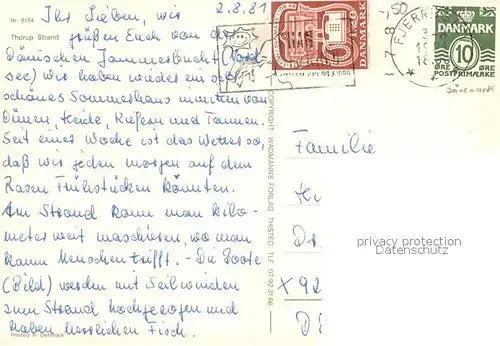 Nr. 8154
Thorup Strand
2.8.81
Ihr Lieben, wir
grüßen Euch von der
Dänischen Jammerbucht (Nord
see) Wir haben wieder ein sehr
schönes Sommerhaus inmitten von
Dünen, Heide, Kiefern und Tannen.
Seit einer Woche ist das Wetter so,
daß wir jeden morgen auf dem
Rasen Frühstücken könnten.
Am Strand kann man kilo-
meterweit maschieren, wo man
kaum Menschen trifft. - Die Boote
(Bild) werden mit Seilwinden
zum Strand hochgezogen und
haben herrlichen Fisch.
Printed in Denmark
COPYRIGHT: WADMANNS FORLAG THISTED. TLF. 07-92 31 66
DANMARK
FJERR
DANMARK
10
ØRE ØRE
POSTFRIMÆRKE
Dänemark
Familie
privacy protection
watermark
X 92